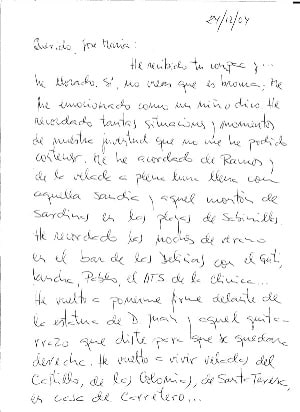 24/12/04
Querido José María:
He recibido tu compac y...
he llorado. Sí, no creas que es broma. Me
he emocionado como un niño chico. He
recordado tantas situaciones y momentos
de nuestra juventud que no me he podido
contener. Me he acordado de Ramos y
de la velada a plena luna llena con
aquella sandía y aquel montón de
sardinas en las playas de Sabinillas.
He recordado las noches de verano
en el bar de las Delicias con el
Pablo, el ATS de la clínica...
He vuelto a ponerme firme delante de
la estatua de D. Juan y aquel guita-
rrazo que diste para que se quedara
derecha. He vuelto a vivir veladas del
Castillo, de las Colonias, de Santa Teresa,
en casa de Carretero...